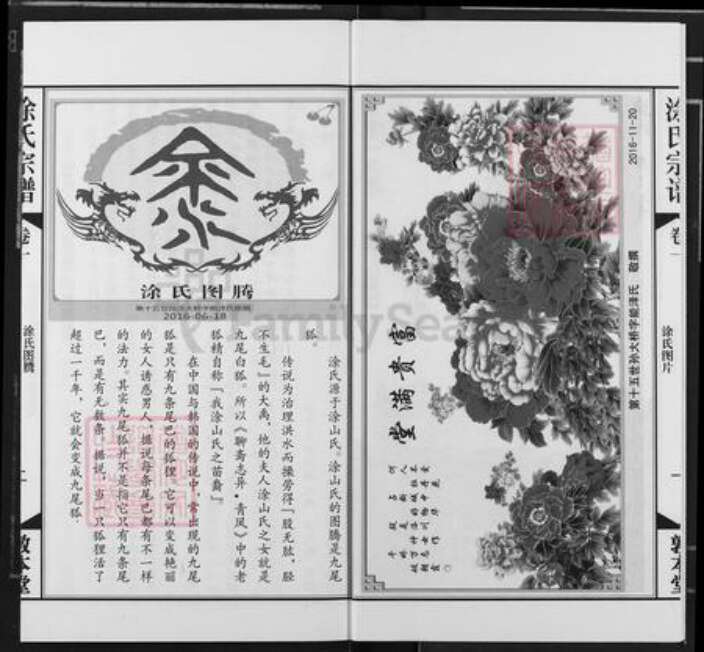 涂氏宗谱
卷一
涂氏图片
一
敦本堂
2016-11-20
第十五世孙大桥字能津氏 敬撰
富贵满堂
何人不爱牡丹花
占断城中好物华
疑是洛川神女作
千娇万态破朝霞。
涂氏图腾
2016-06-18
涂氏源于涂山氏。涂山氏的图腾是九尾
狐。
传说为治理洪水而操劳得「股无肱，胫
不生毛」的大禹，他的夫人涂山氏之女就是
九尾白狐。所以《聊斋志异·青凤》中的老
狐精自称「我涂山氏之苗裔」。
在中国与韩国的传说中，常出现的九尾
狐是只有九条尾巴的狐狸。它可以变成艳丽
的女人诱惑男人，据说每条尾巴都有不一样
的法力。其实九尾狐并不是指它只有九条尾
巴，而是有无数条。据说，当一只狐狸活了
超过一千年，它就会变成九尾狐
涂氏宗谱
卷一
涂氏图腾
敦本堂
FamilySearch